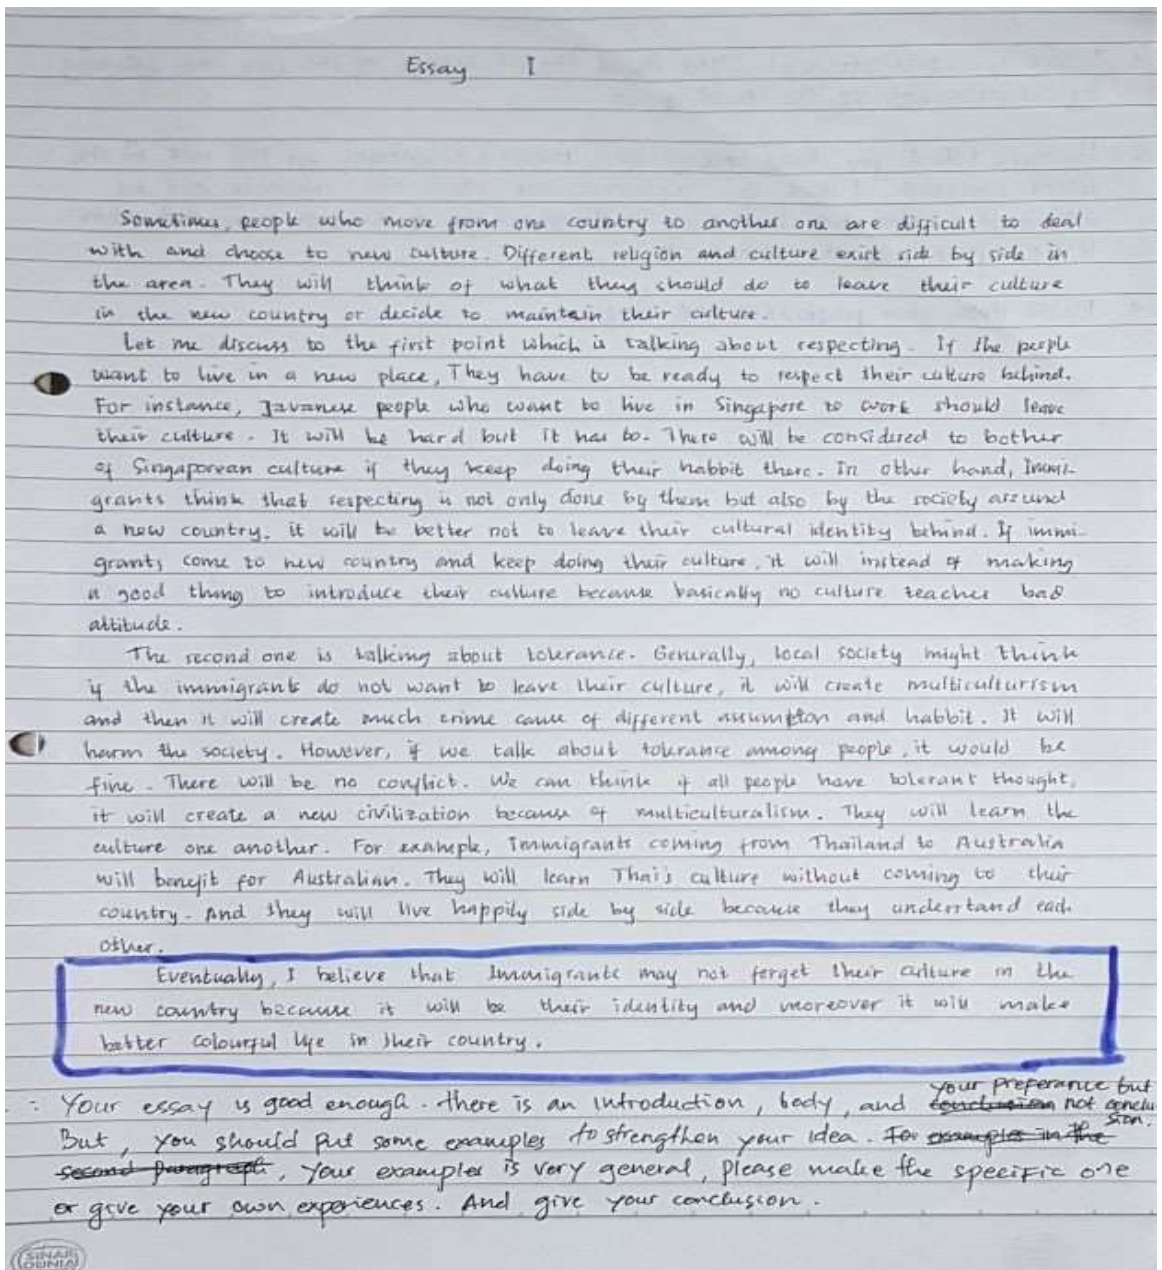 Essay I
Sometimes, people who move from one country to another one are difficult to deal
with and choose to new culture. Different religion and culture exist side by side in
the area. They will think of what they should do to leave their culture
in the new country or decide to maintain their culture.
Let me discuss to the first point which is talking about respecting. If the people
want to live in a new place, They have to be ready to respect their culture behind.
For instance, Javanese people who want to live in Singapore to work should leave
their culture. It will be hard but it has to. There will be considered to bother
of Singaporean culture if they keep doing their habbit there. In other hand, Immi-
grants think that respecting is not only done by them but also by the society around
a new country. it will be better not to leave their cultural identity behind. If immi-
grants come to new country and keep doing their culture, it will instead of making
a good thing to introduce their culture because basically no culture teaches bad
attitude.
The second one is talking about tolerance. Generally, local society might think
if the immigrants do not want to leave their culture, it will create multiculturism
and then it will create much crime cause of different assumption and habbit. It will
harm the society. However, if we talk about tolerance among people, it would be
fine. There will be no conflict. We can think if all people have tolerant thought,
it will create a new civilization because of multiculturalism. They will learn the
culture one another. For example, Immigrants coming from Thailand to Australia
will benefit for Australian. They will learn Thai's culture without coming to their
country. And they will live happily side by side because they understand each
other.
Eventually, I believe that Immigrants may not forget their culture in the
new country because it will be their identity and moreover it will make
better colourful life in their country.
your preferance but
: Your essay is good enough. there is an introduction, body, and conclusion not conclu
sion.
But, you should put some examples to strengthen your idea. For examples in the
second paragraph, Your examples is very general, please make the specific one
or give your own experiences. And give your conclusion.
SINAR
DUNIA